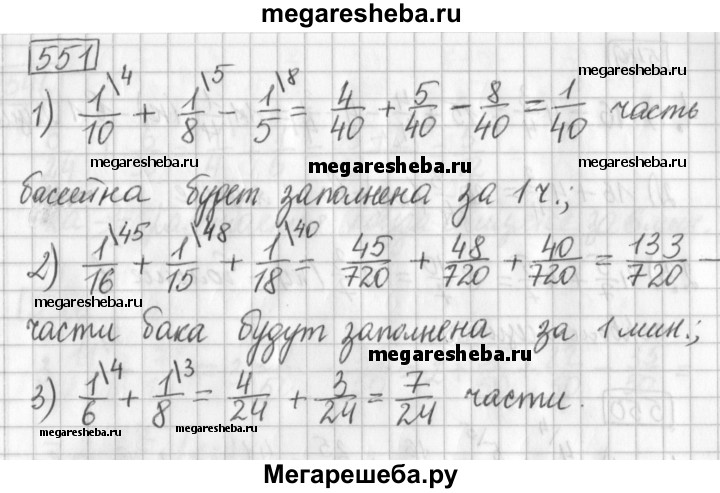 megaresheba.ru
551
megaresheba.ru
1) 1/10 \4 + 1/8 \5 - 1/5 \8 = 4/40 + 5/40 - 8/40 = 1/40 часть
megaresheba.ru megaresheba.ru megaresheba.ru
бассейна будет заполнена за 1 ч.;
2) 1/16 \45 + 1/15 \48 + 1/18 \40 = 45/720 + 48/720 + 40/720 = 133/720 -
megaresheba.ru megaresheba.ru
части бака будут заполнена за 1 мин.;
megaresheba.ru
3) 1/6 \4 + 1/8 \3 = 4/24 + 3/24 = 7/24 части.
megaresheba.ru megaresheba.ru megaresheba.ru
Мегарешеба.ру